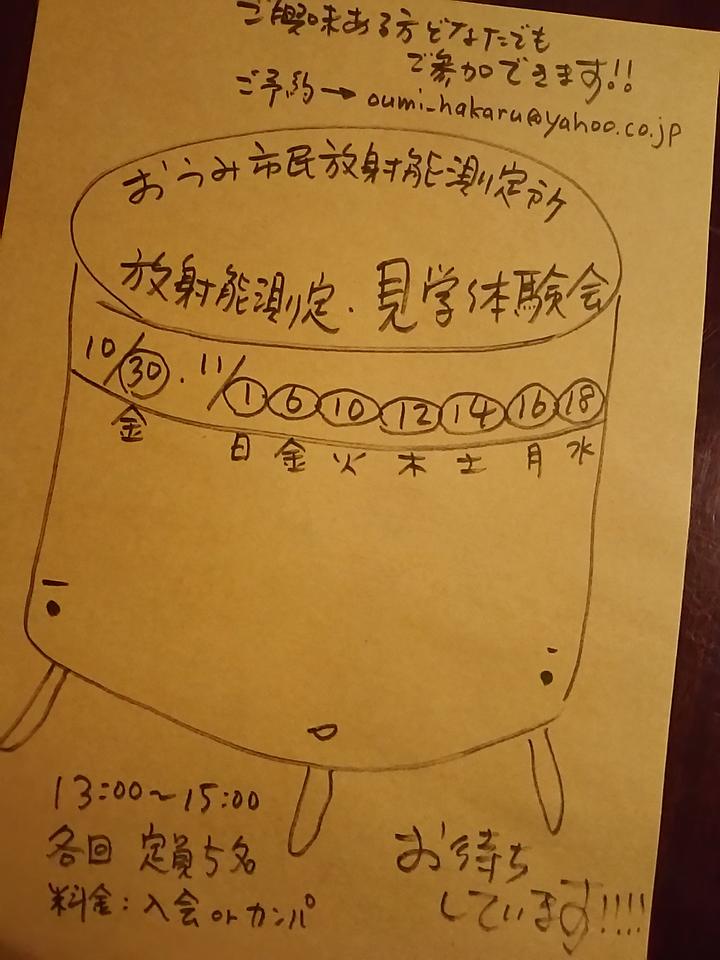 ご興味ある方どなたでも
ご参加できます!!
ご予約→oumi_hakaru@yahoo.co.jp
おうみ市民放射能測定所
放射能測定・見学体験会
10/30・11/1 6 10 12 14 16 18
金 日 金 火 木 土 月 水
13:00~15:00
各回 定員5名
料金:入会orカンパ
お待ち
しています!!!!